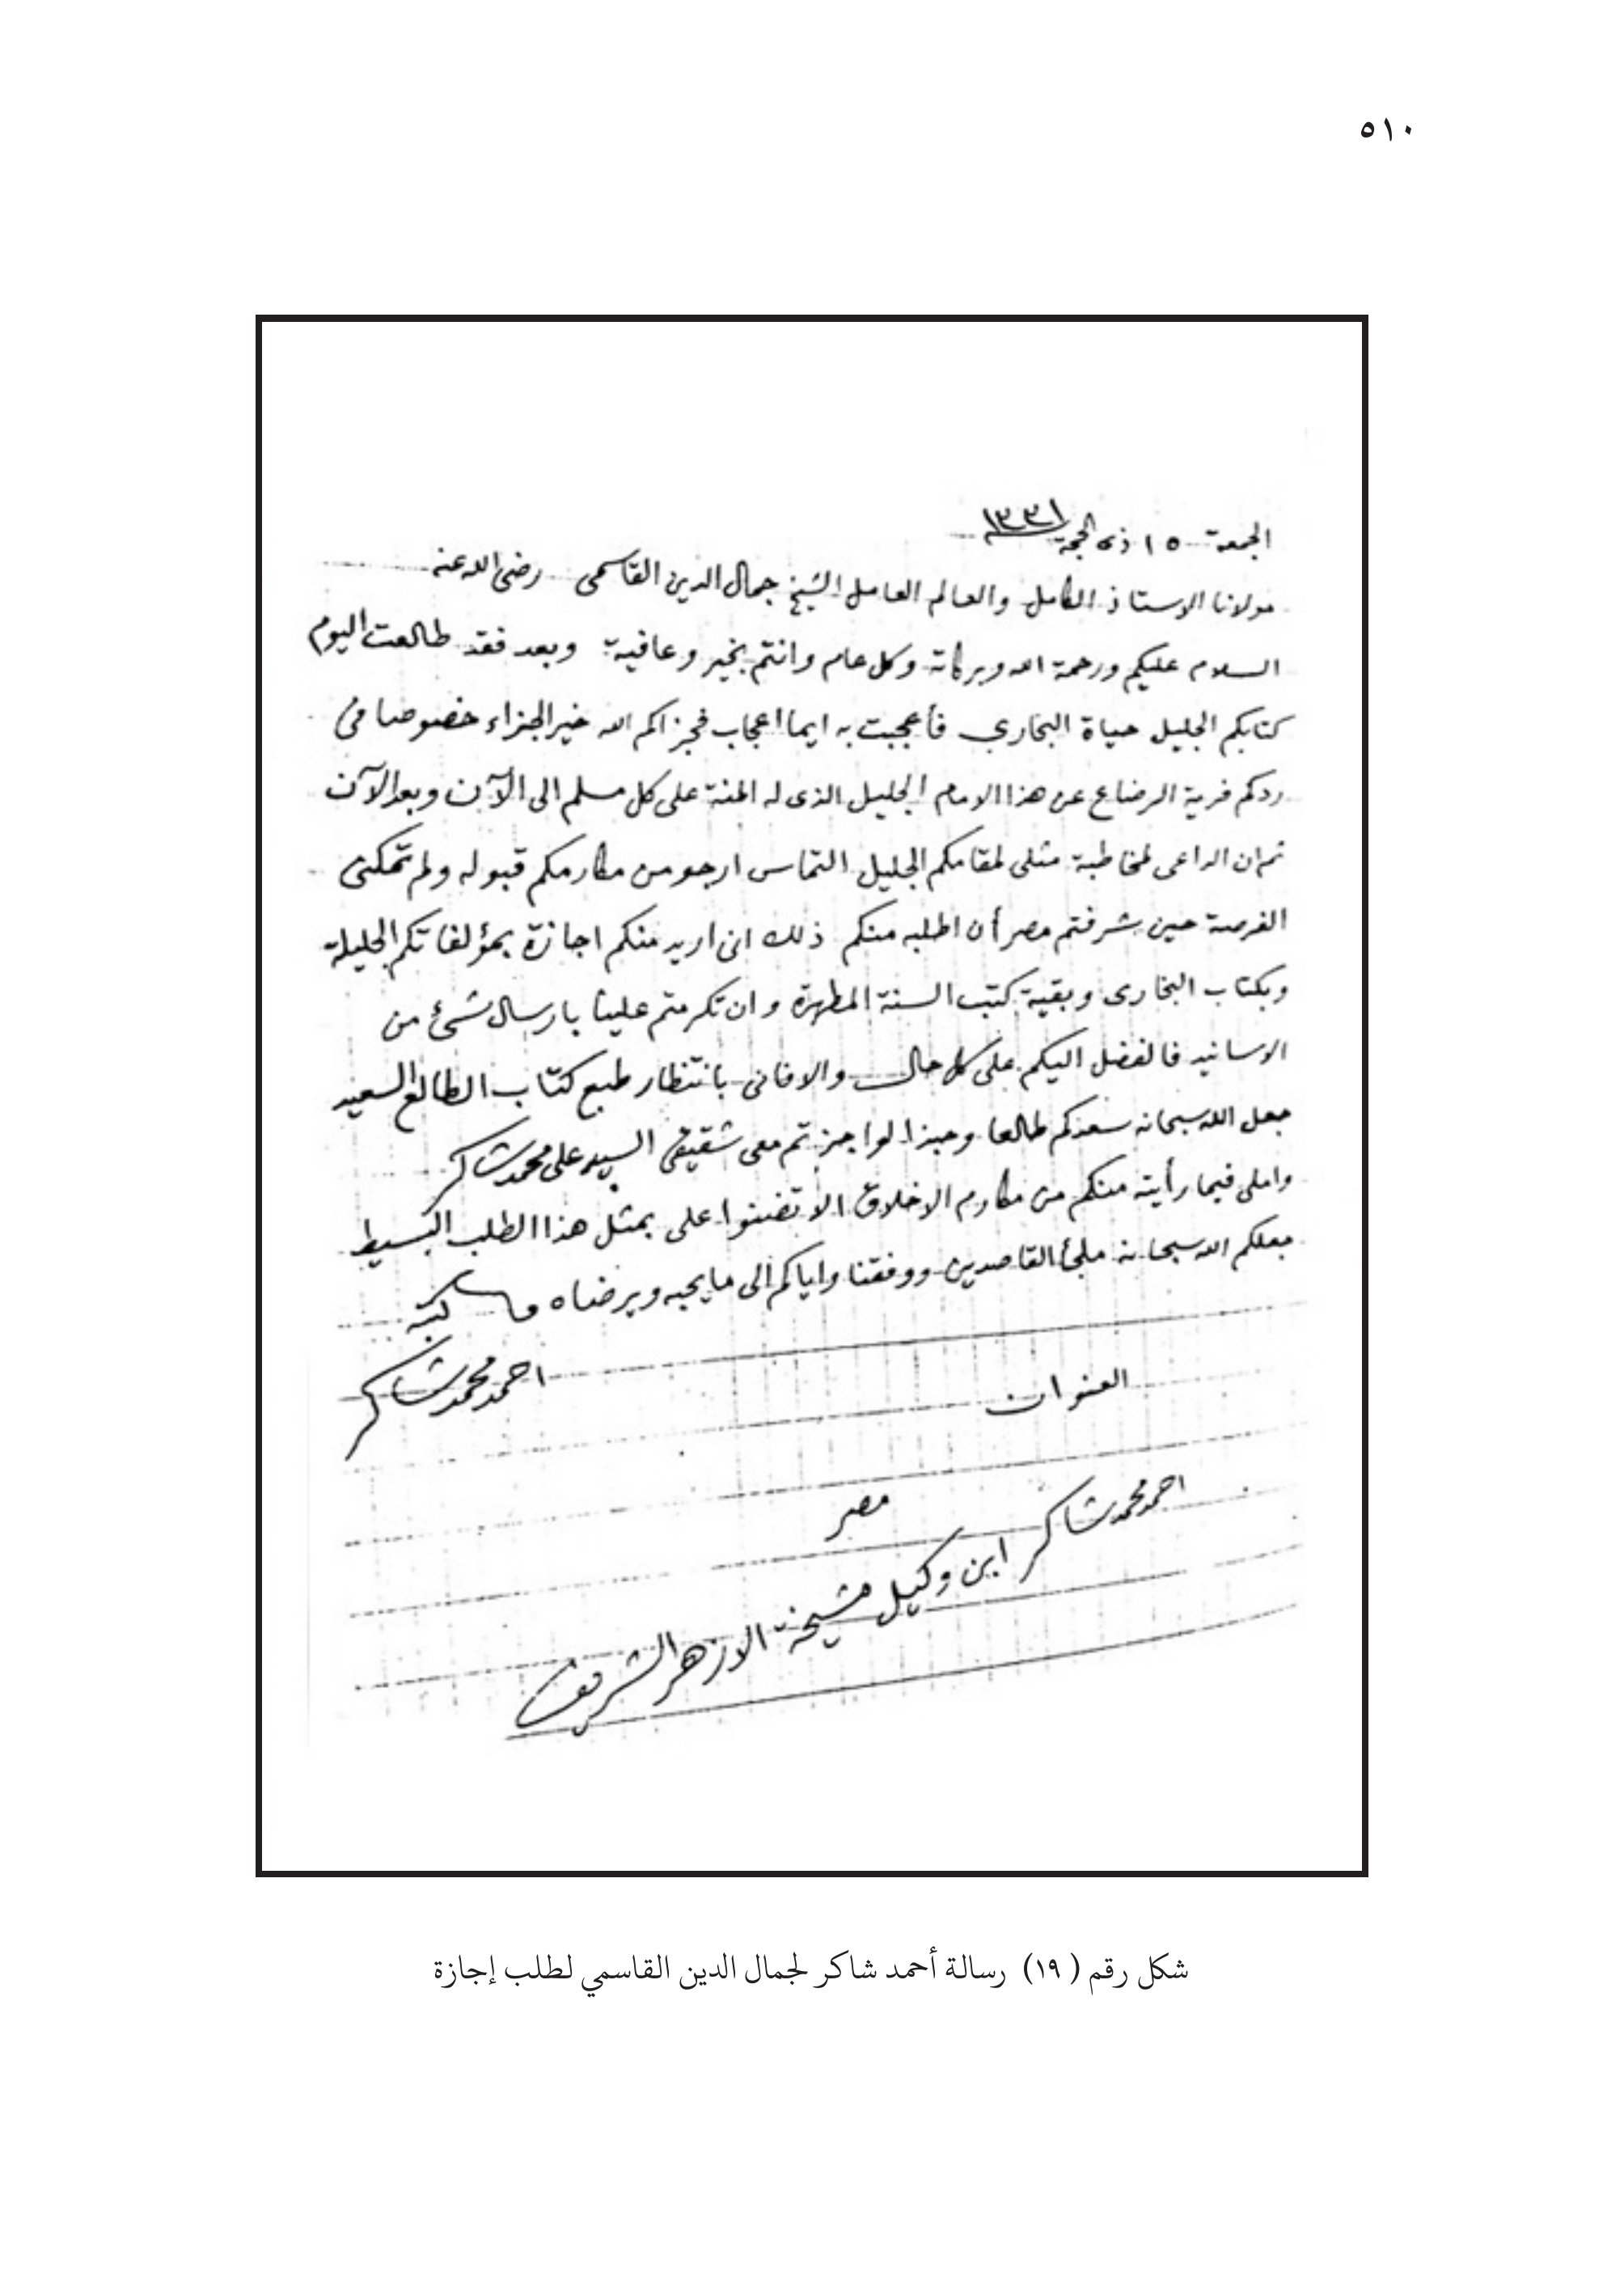 ٥١٠
الجمعة ١٥ ذى الحجة ١٣٣١
مولانا الاستاذ الكامل والعالم العامل الشيخ جمال الدين القاسمى رضى الله عنه
السلام عليكم ورحمة الله وبركاته وكل عام وانتم بخير وعافية وبعد فقد طالعت اليوم
كتابكم الجليل حياة البخاري فأعجبت به ايما اعجاب فجزاكم الله خير الجزاء خصوصا فى
ردكم فرية الرضاع عن هذا الامام الجليل الذى له المنة على كل مسلم الى الآن وبعد الآن
ثم ان الداعى لمخاطبة مثلى لمقامكم الجليل التماس ارجو من مكارمكم قبوله ولم تمكنى
الفرصة حين شرفتم مصر أن اطلبه منكم ذلك انى اريد منكم اجازة بمؤلفاتكم الجليلة
وبكتاب البخارى وبقية كتب السنة المطهرة وان تكرمتم علينا بارسال شئ من
الاسانيد فالفضل اليكم على كل حال والا فانى بانتظار طبع كتاب الطالع السعيد
جعل الله سبحانه سعدكم طالعا وحبذا لو اجزتم معى شقيقى السيد على محمد شاكر
واملى فيما رأيته منكم من مكارم الاخلاق الا تضنوا على بمثل هذا الطلب البسيط
جعلكم الله سبحانه ملجأ القاصدين ووفقنا واياكم الى ما يحبه ويرضاه كتبه
احمد محمد شاكر
العنوان
مصر
احمد محمد شاكر ابن وكيل مشيخة الازهر الشريف
شكل رقم ( ١٩) رسالة أحمد شاكر لجمال الدين القاسمي لطلب إجازة